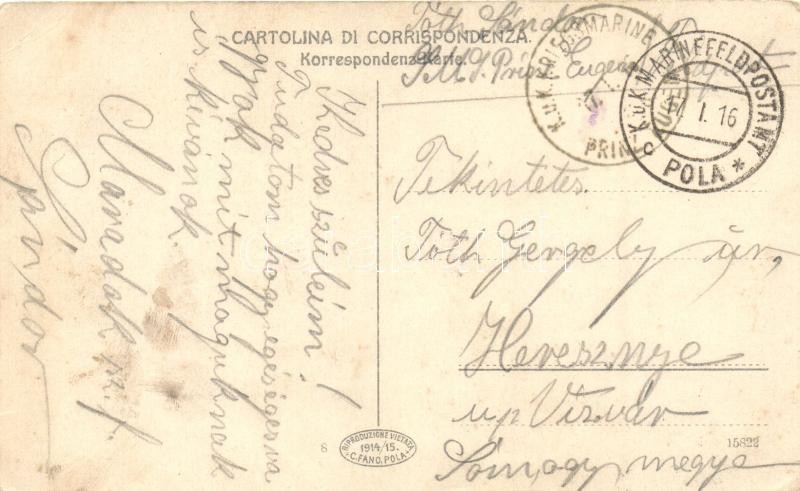 CARTOLINA DI CORRISPONDENZA.
Korrespondenz-Karte.
Tóth Sándor
S.M.S. Prinz Eugen
K.u.K. KRIEGSMARINE
PRINZ
K.u.K. MARINEFELDPOSTAMT
I. 16
POLA *
Kedves szüleim!
Tudatom hogy egéséges va
gyok mit maguknak
is kivánok.
Maradok
Sándor
Tekintetes
Tóth Gergely úr,
Heresznye
up Vizvár
Somogy megye
8
RIPRODUZIONE VIETATA
1914/15.
C. FANO, POLA
15822